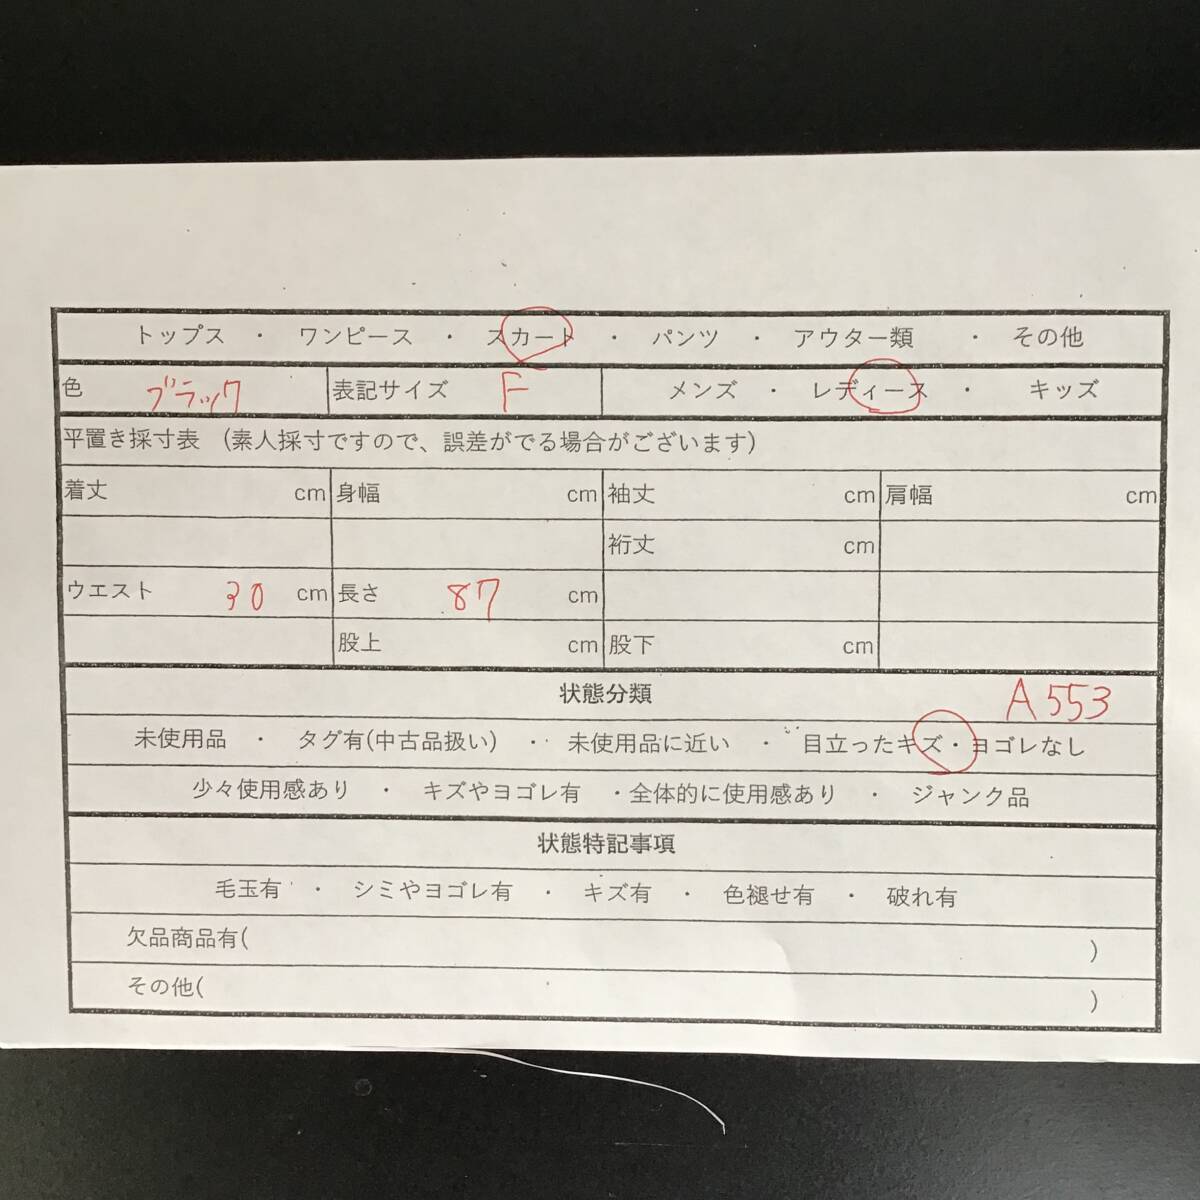 トップス ・ ワンピース ・ スカート ・ パンツ ・ アウター類 ・ その他
色 ブラック 表記サイズ F メンズ ・ レディース ・ キッズ
平置き採寸表 (素人採寸ですので、誤差がでる場合がございます)
着丈 cm 身幅 cm 袖丈 cm 肩幅 cm
裄丈 cm
ウエスト 30 cm 長さ 87 cm
股上 cm 股下 cm
状態分類 A553
未使用品 ・ タグ有(中古品扱い) ・ 未使用品に近い ・ 目立ったキズ・ヨゴレなし
少々使用感あり ・ キズやヨゴレ有 ・全体的に使用感あり ・ ジャンク品
状態特記事項
毛玉有 ・ シミやヨゴレ有 ・ キズ有 ・ 色褪せ有 ・ 破れ有
欠品商品有( )
その他( )